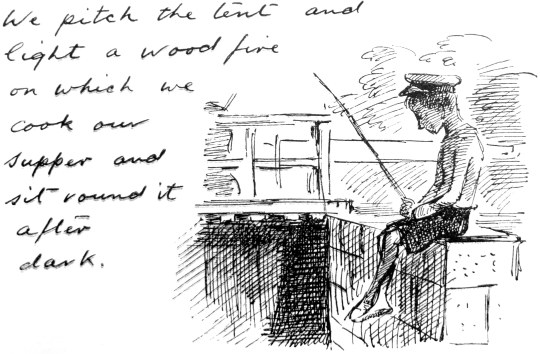 We pitch the tent and
light a wood fire
on which we
cook our
supper and
sit round it
after
dark.